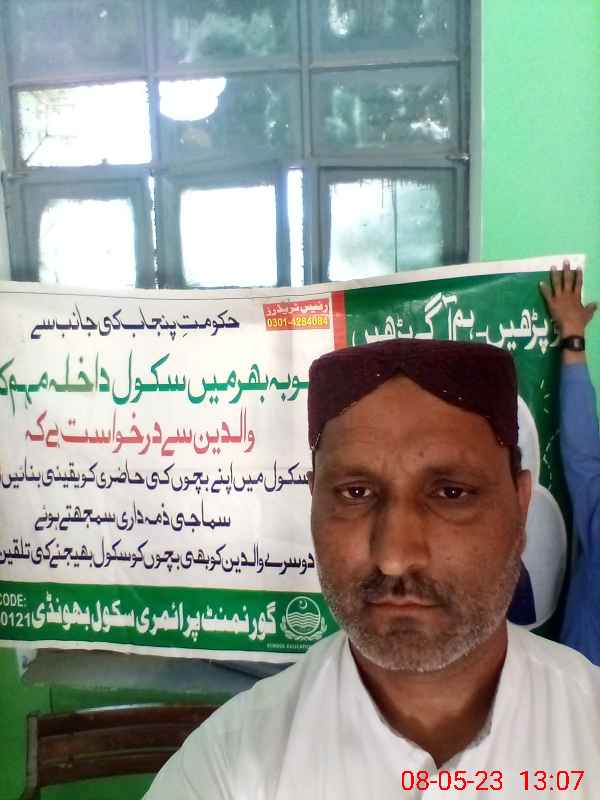 حکومتِ پنجاب کی جانب سے
رئیس ٹریڈرز
0301-4284084
پڑھیں۔ ہم آگے بڑھیں
صوبہ بھر میں سکول داخلہ مہم
والدین سے درخواست ہے کہ
سکول میں اپنے بچوں کی حاضری کو یقینی بنائیں
سماجی ذمہ داری سمجھتے ہوئے
دوسرے والدین کو بھی بچوں کو سکول بھیجنے کی تلقین
گورنمنٹ پرائمری سکول بھونڈی
CODE:
0121
SCHOOL EDUCATION
08-05-23 13:07